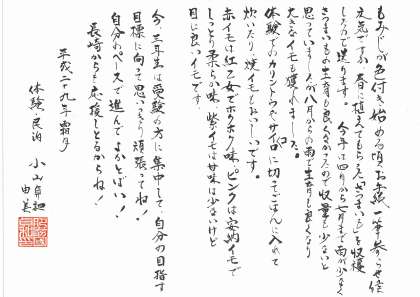 もみじが色付き始める頃お手紙一筆参らせ候
元気ですか 春に植えてもらえさつまいもを収穫
したので送ります。今年は四月から七月まで雨が少なく
さつまいもの生育も良くなかったので収量も少ないと
思っていましたが八月からの雨で生育も良くなり
大きなイモも穫れました。
体験でのカリントウやサイコロに切ってごはんに入れて
炊いたり、焼イモもおいしいです。
赤イモは紅乙女でホクホク味、ピンクは安納イモで
しっとり柔らか味、紫イモは甘味は少ないけど
目に良いイモです。
今、三年生は受験の方に集中して、自分の目指す
目標に向って思いきり頑張ってね!
自分のペースで進んでよかとばい!
長崎からも応援しとるからね!
平成二十九年 霜月
体験・民泊 小山
由美